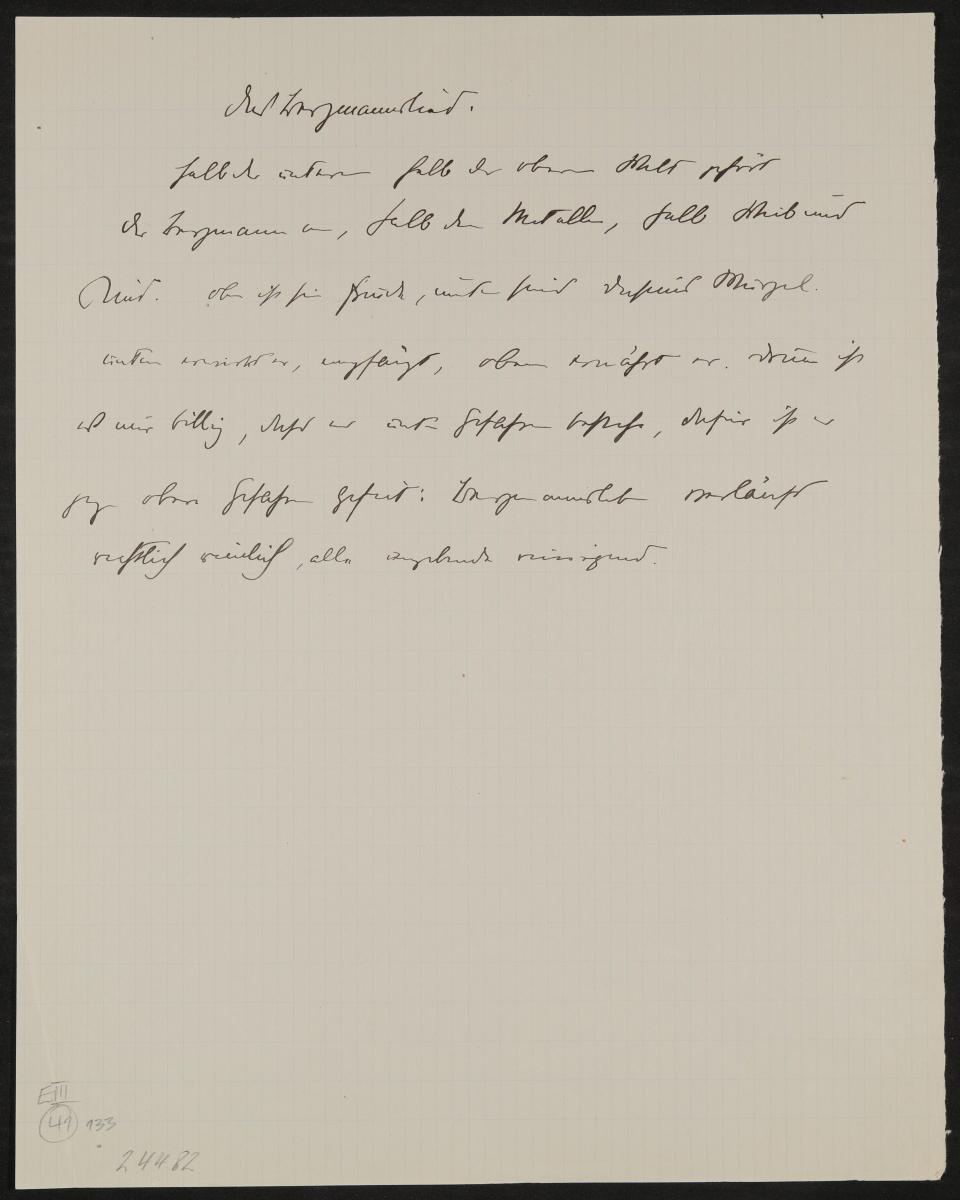 Das Bergmannslied.
Halb der unteren halb der oberen Welt gehört
der Bergmann an, halb den Metallen, halb Weib und
Kind. oben ist sein Frucht, unten sind Wurzel.
unten er, empfängt, oben ernährt er. Drum ist
es nur billig, dass er unten Gefahren bestehe, dafür ist er
gegen obere Gefahren gefeit: Bergmannsleben verläuft
rechtlich reinlich, alle
EIII
41 133
24482